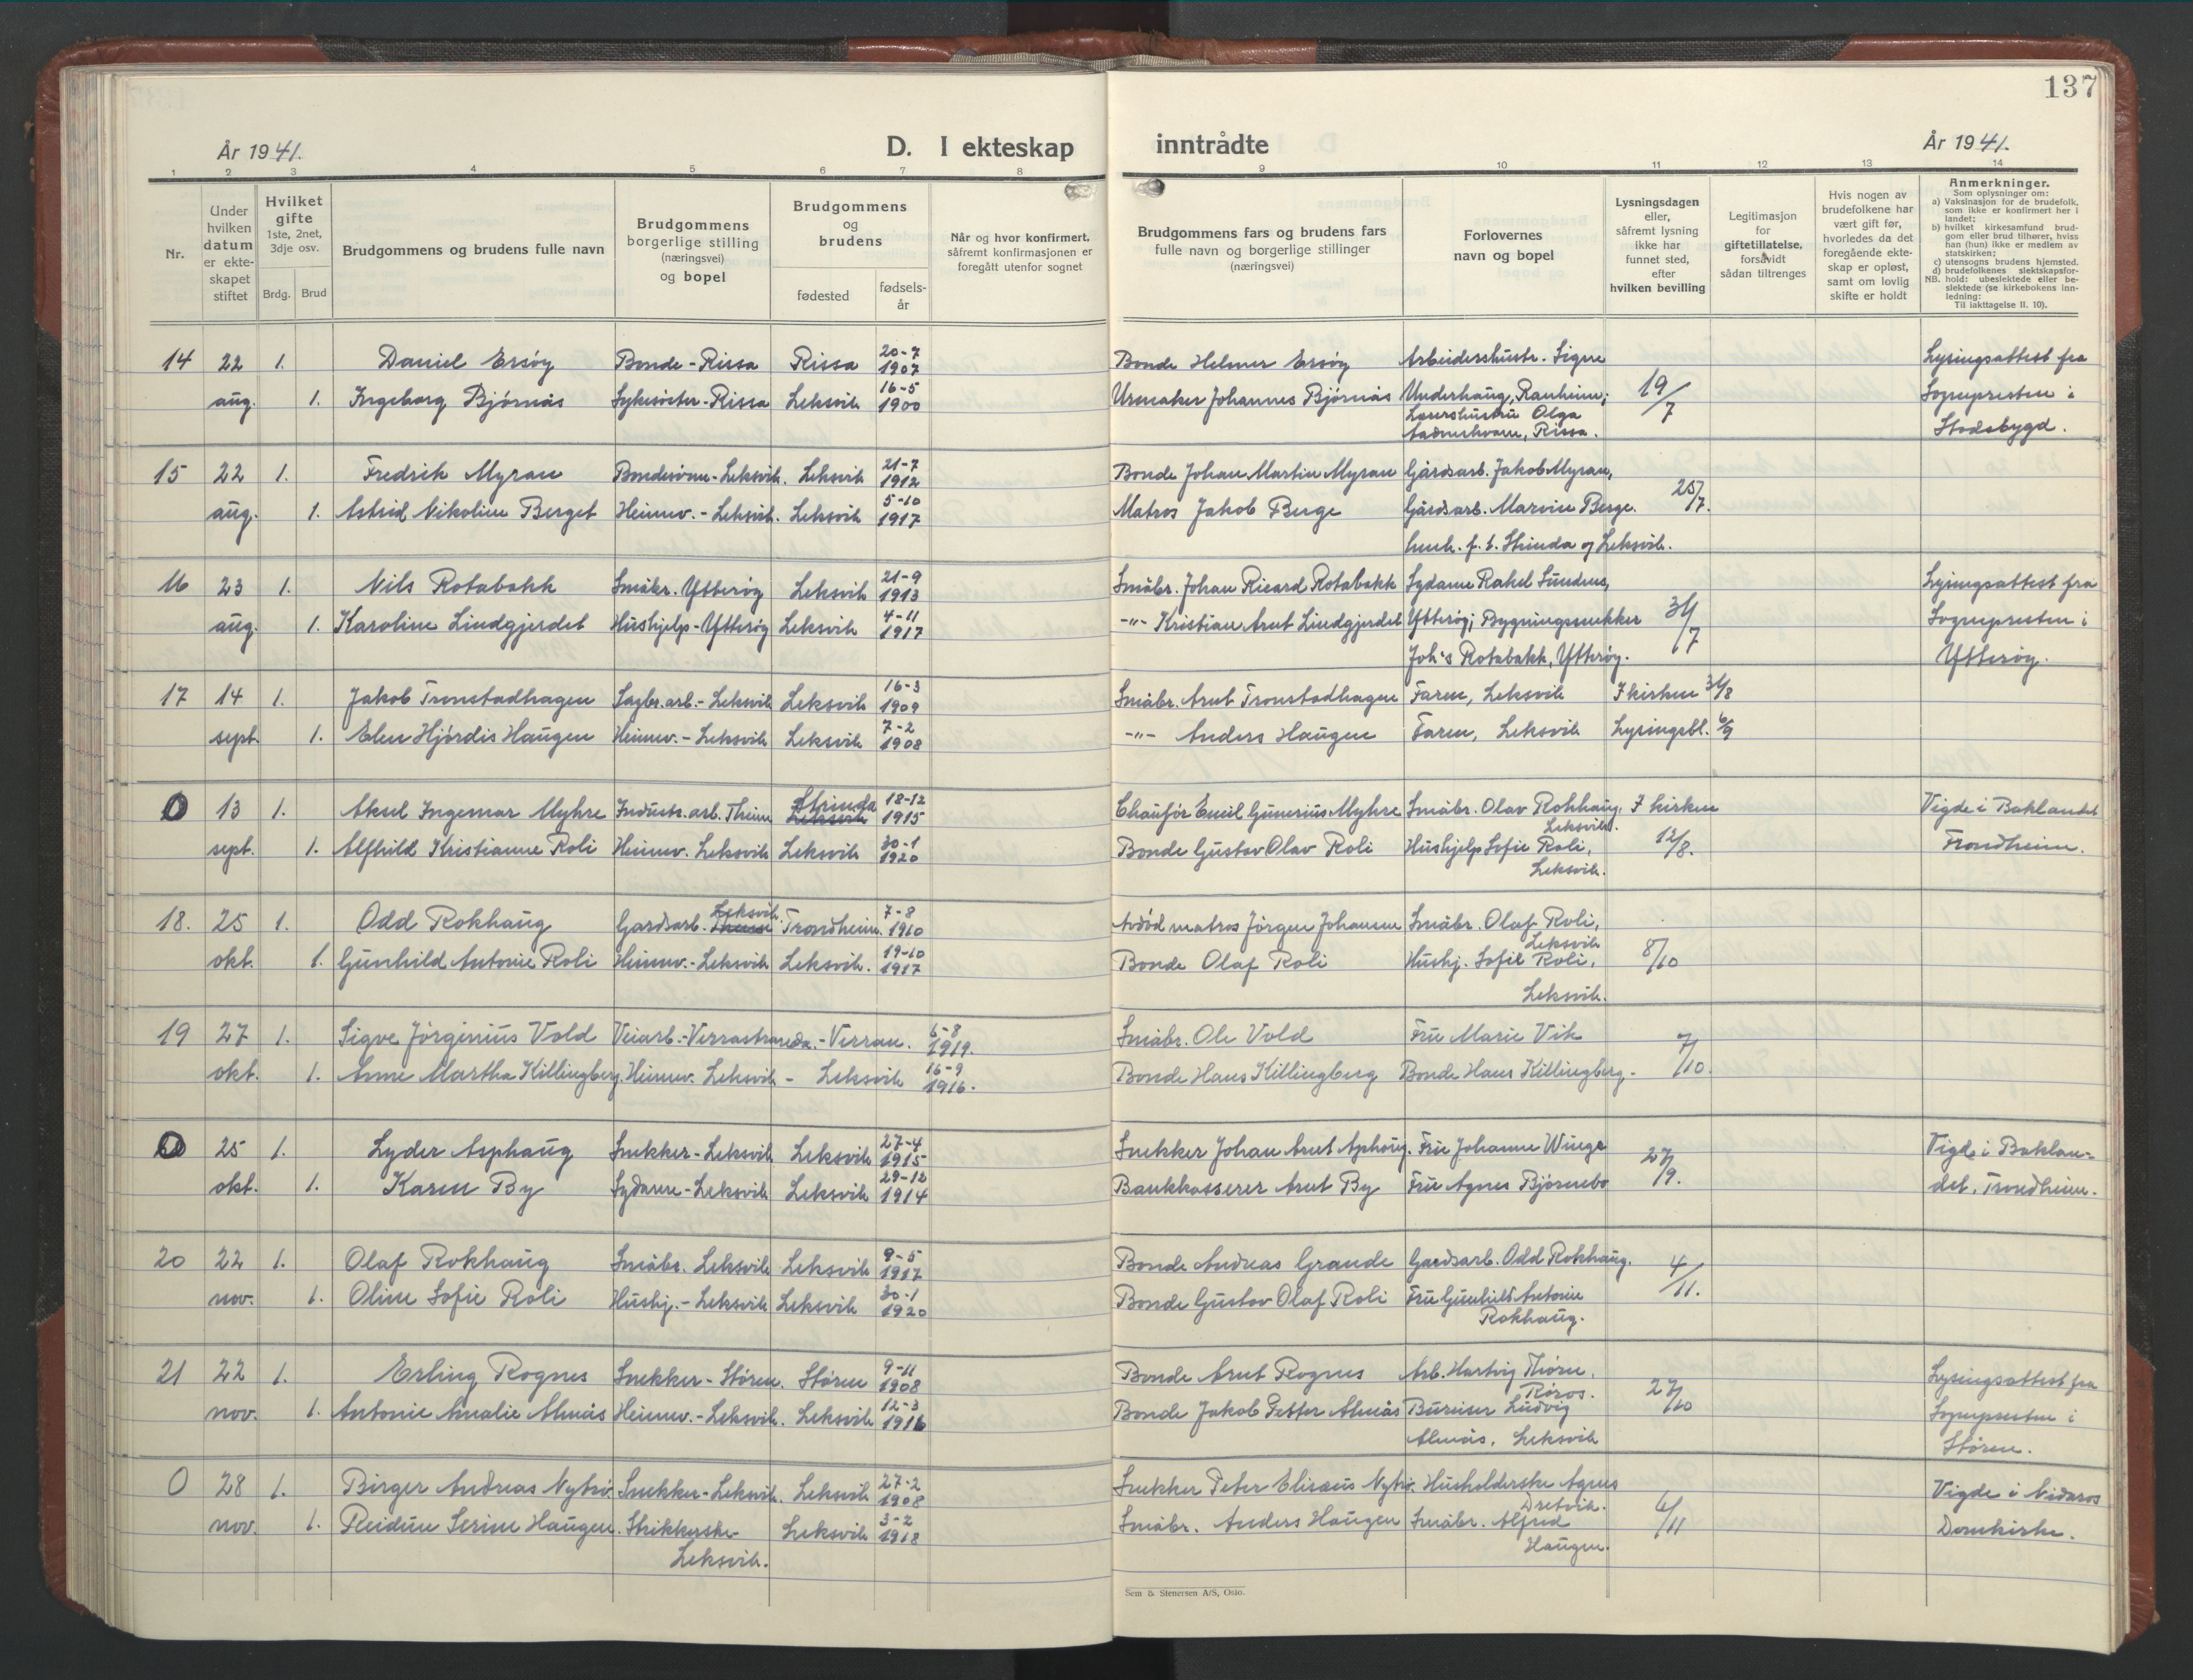 137
År 1941.
D. I ekteskap inntrådte
År 1941.
1 2 3 4 5 6 7 8 9 10 11 12 13 14
Nr.
Under hvilken datum er ekteskapet stiftet
Hvilket gifte
1ste, 2net, 3dje osv.
Brdg. Brud
Brudgommens og brudens fulle navn
Brudgommens borgerlige stilling (næringsvei) og bopel
Brudgommens og brudens
fødested
fødselsår
Når og hvor konfirmert, såfremt konfirmasjonen er foregått utenfor sognet
Brudgommens fars og brudens fars fulle navn og borgerlige stillinger (næringsvei)
Forlovernes navn og bopel
Lysningsdagen eller, såfremt lysning ikke har funnet sted, efter hvilken bevilling
Legitimasjon for giftetillatelse, forsåvidt sådan tiltrenges
Hvis nogen av brudefolkene har vært gift før, hvorledes da det foregående ekteskap er opløst, samt om lovlig skifte er holdt
Anmerkninger.
Som oplysninger om:
a) Vaksinasjon for de brudefolk, som ikke er konfirmert her i landet;
b) hvilket kirkesamfund brudgom eller brud tilhører, hviss han (hun) ikke er medlem av statskirken;
c) utensogns brudens hjemsted.
d) brudefolkenes slektskapsforhold: ubeslektede eller beslektede (se kirkebokens innledning:
NB. Til iakttagelse II. 10).
14 22 1. Daniel Ersøy Bonde - Rissa Rissa 20-7 1907 Bonde Helmer Ersøy Arbeidershustr. Signe Lysingsattest fra
aug. 1. Ingeborg Bjørnås Sykesøster - Rissa Leksvik 16-5 1900 Urmaker Johannes Bjørnås Underhaug, Ranheim; 19/7 Sognepresten i
Lærershustru Olga Stadsbygd.
Rissa.
15 22 1. Fredrik Myran Bondesønn - Leksvik. Leksvik 21-7 1912 Bonde Johan Martin Myran Gårdsarb. Jakob Myran,
aug. 1. Astrid Nikoline Berget Heimev. - Leksvik. Leksvik 5-10 1917 Matros Jakob Berge Gårdsarb. Marvin Berge. 25/7.
henh. f. t. Strinda og Leksvik.
16 23 1. Nils Rotabakk Småbr. Ytterøy Leksvik 21-9 1913 Småbr. Johan Ricard Rotabakk Sydame Rakel Sundnes, Lysingsattest fra
aug. 1. Karoline Lindgjerdet Hushjelp - Ytterøy Leksvik 4-11 1917 -"- Kristian Arnt Lindgjerdet Ytterøy; Bygningssnekker 31/7 Sognepresten i
Joh's Rotabakk, Ytterøy. Ytterøy.
17 14 1. Jakob Tronstadhagen Sagbr.arb. - Leksvik Leksvik 16-3 1909 Småbr. Arnt Tronstadhagen Faren, Leksvik I kirken 31/8
sept. 1. Elen Hjørdis Haugen Heimev. - Leksvik Leksvik 7-2 1908 -"- Anders Haugen Faren, Leksvik Lysingsbl. 6/9
0 13 1. Aksel Ingemar Myhre Industr.arb. Theim Strinda Leksvik 18-12 1915 Chaufør Emil Gunerius Myhre Småbr. Olav Rokhaug, I kirken Vigde i Baklandet
Leksvik.
sept. 1. Alfhild Kristianne Roli Heimev. Leksvik Leksvik 30-1 1920 Bonde Gustav Olav Roli Hushjelp Sofie Roli, 12/8. Trondheim.
Leksvik.
18. 25 1. Odd Rokhaug Gardsarb. Leksvik. Trondheim. 7-8 1910 Avdød matros Jørgen Johansen Småbr. Olaf Roli,
Leksvik
okt. 1. Gunhild Antonie Roli Heimev. - Leksvik Leksvik. 19-10 1917 Bonde Olaf Roli Hushj. Sofie Roli, 8/10
Leksvik.
19 27 1. Sigve Jørginius Vold Veiarb. - Verrastranda. - Verran. 6-8 1919. Småbr. Ole Vold Fru Marie Vik
okt. 1. Anne Martha Killingberg. Heimev. Leksvik - Leksvik 16-9 1916. Bonde Hans Killingberg Bonde Hans Killingberg. 7/10.
0 25 1. Lyder Asphaug Snekker - Leksvik Leksvik 27-4 1915 Snekker Johan Arnt Asphaug. Fru Johanne Winge Vigde i Baklan-
okt. 1. Karen By Sydame - Leksvik Leksvik 29-12 1914 Bankkasserer Arnt By Fru Agnes Bjørnebo 27/9. det, Trondheim.
20 22 1. Olaf Rokhaug Småbr. Leksvik Leksvik 9-5 1917 Bonde Andreas Grande Gardsarb. Odd Rokhaug.
nov. 1. Oline Sofie Roli Hushj. - Leksvik Leksvik 30-1 1920 Bonde Gustav Olaf Roli Fru Gunhild Antonie 4/11.
Rokhaug.
21 22 1. Erling Rognes Snekker - Støren. Støren 9-11 1908 Bonde Arnt Rognes Arb. Hartvig Lysingsattest fra
Røros.
nov. 1. Antonie Amalie Almås Heimev. - Leksvik. Leksvik 12-3 1916 Bonde Jakob Petter Almås Bureiser Ludvig 27/10 Sognepresten i
Almås, Leksvik Støren.
0 28 1. Birger Andreas Nytrø Snekker - Leksvik. Leksvik 27-2 1908 Snekker Peter Elisæus Nytrø. Husholderske Agnes Vigde i Nidaros
Dretvik.
nov. 1. Reidun Serine Haugen. Strikkerske - Leksvik 3-2 1918 Småbr. Anders Haugen Småbr. Alfred 6/11 Domkirke.
Leksvik. Haugen.
Sem & Stenersen A/S, Oslo.